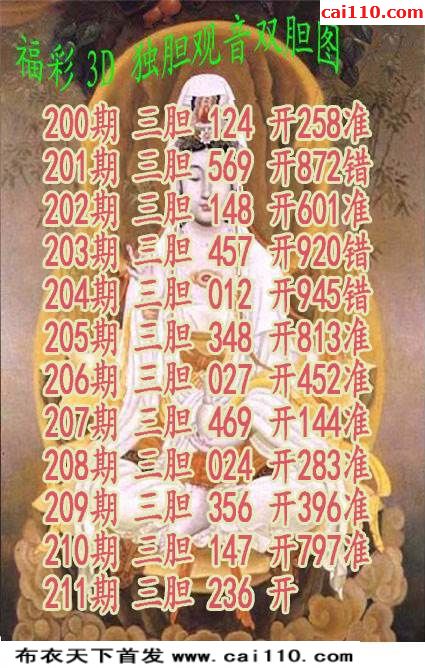 cai110.com
福彩 3D 独胆观音双胆图
200期 三胆 124 开258准
201期 三胆 569 开872错
202期 三胆 148 开601准
203期 三胆 457 开920错
204期 三胆 012 开945错
205期 三胆 348 开813准
206期 三胆 027 开452准
207期 三胆 469 开144准
208期 三胆 024 开283准
209期 三胆 356 开396准
210期 三胆 147 开797准
211期 三胆 236 开
布衣天下首发 www.cai110.com